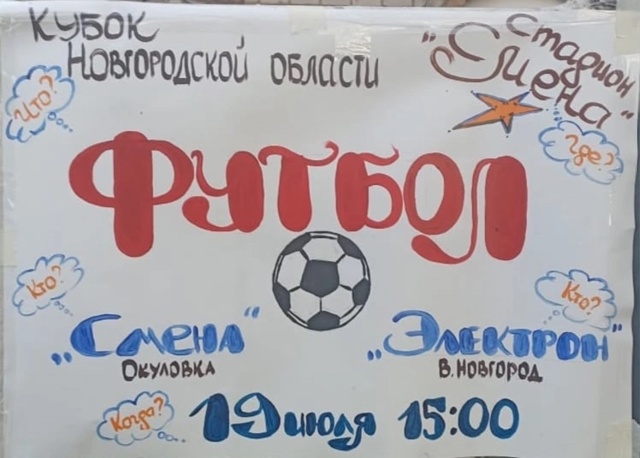 Кубок
Новгородской области
Стадион
"Смена"
Что?
Где?
ФУТБОЛ
Кто?
Кто?
„Смена"
Окуловка
„Электрон"
В.Новгород
Когда?
19 июля 15:00